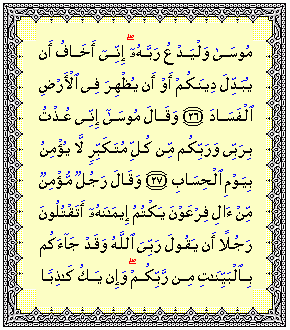 مُوسَىٰ وَلْيَدْعُ رَبَّهُۥٓ ۖ إِنِّىٓ أَخَافُ أَن
يُبَدِّلَ دِينَكُمْ أَوْ أَن يُظْهِرَ فِى ٱلْأَرْضِ
ٱلْفَسَادَ ﴿٢٦﴾ وَقَالَ مُوسَىٰٓ إِنِّى عُذْتُ
بِرَبِّى وَرَبِّكُم مِّن كُلِّ مُتَكَبِّرٍ لَّا يُؤْمِنُ
بِيَوْمِ ٱلْحِسَابِ ﴿٢٧﴾ وَقَالَ رَجُلٌ مُّؤْمِنٌ
مِّنْ ءَالِ فِرْعَوْنَ يَكْتُمُ إِيمَٰنَهُۥٓ أَتَقْتُلُونَ
رَجُلًا أَن يَقُولَ رَبِّىَ ٱللَّهُ وَقَدْ جَآءَكُم
بِٱلْبَيِّنَٰتِ مِن رَّبِّكُمْ ۖ وَإِن يَكُ كَٰذِبًا